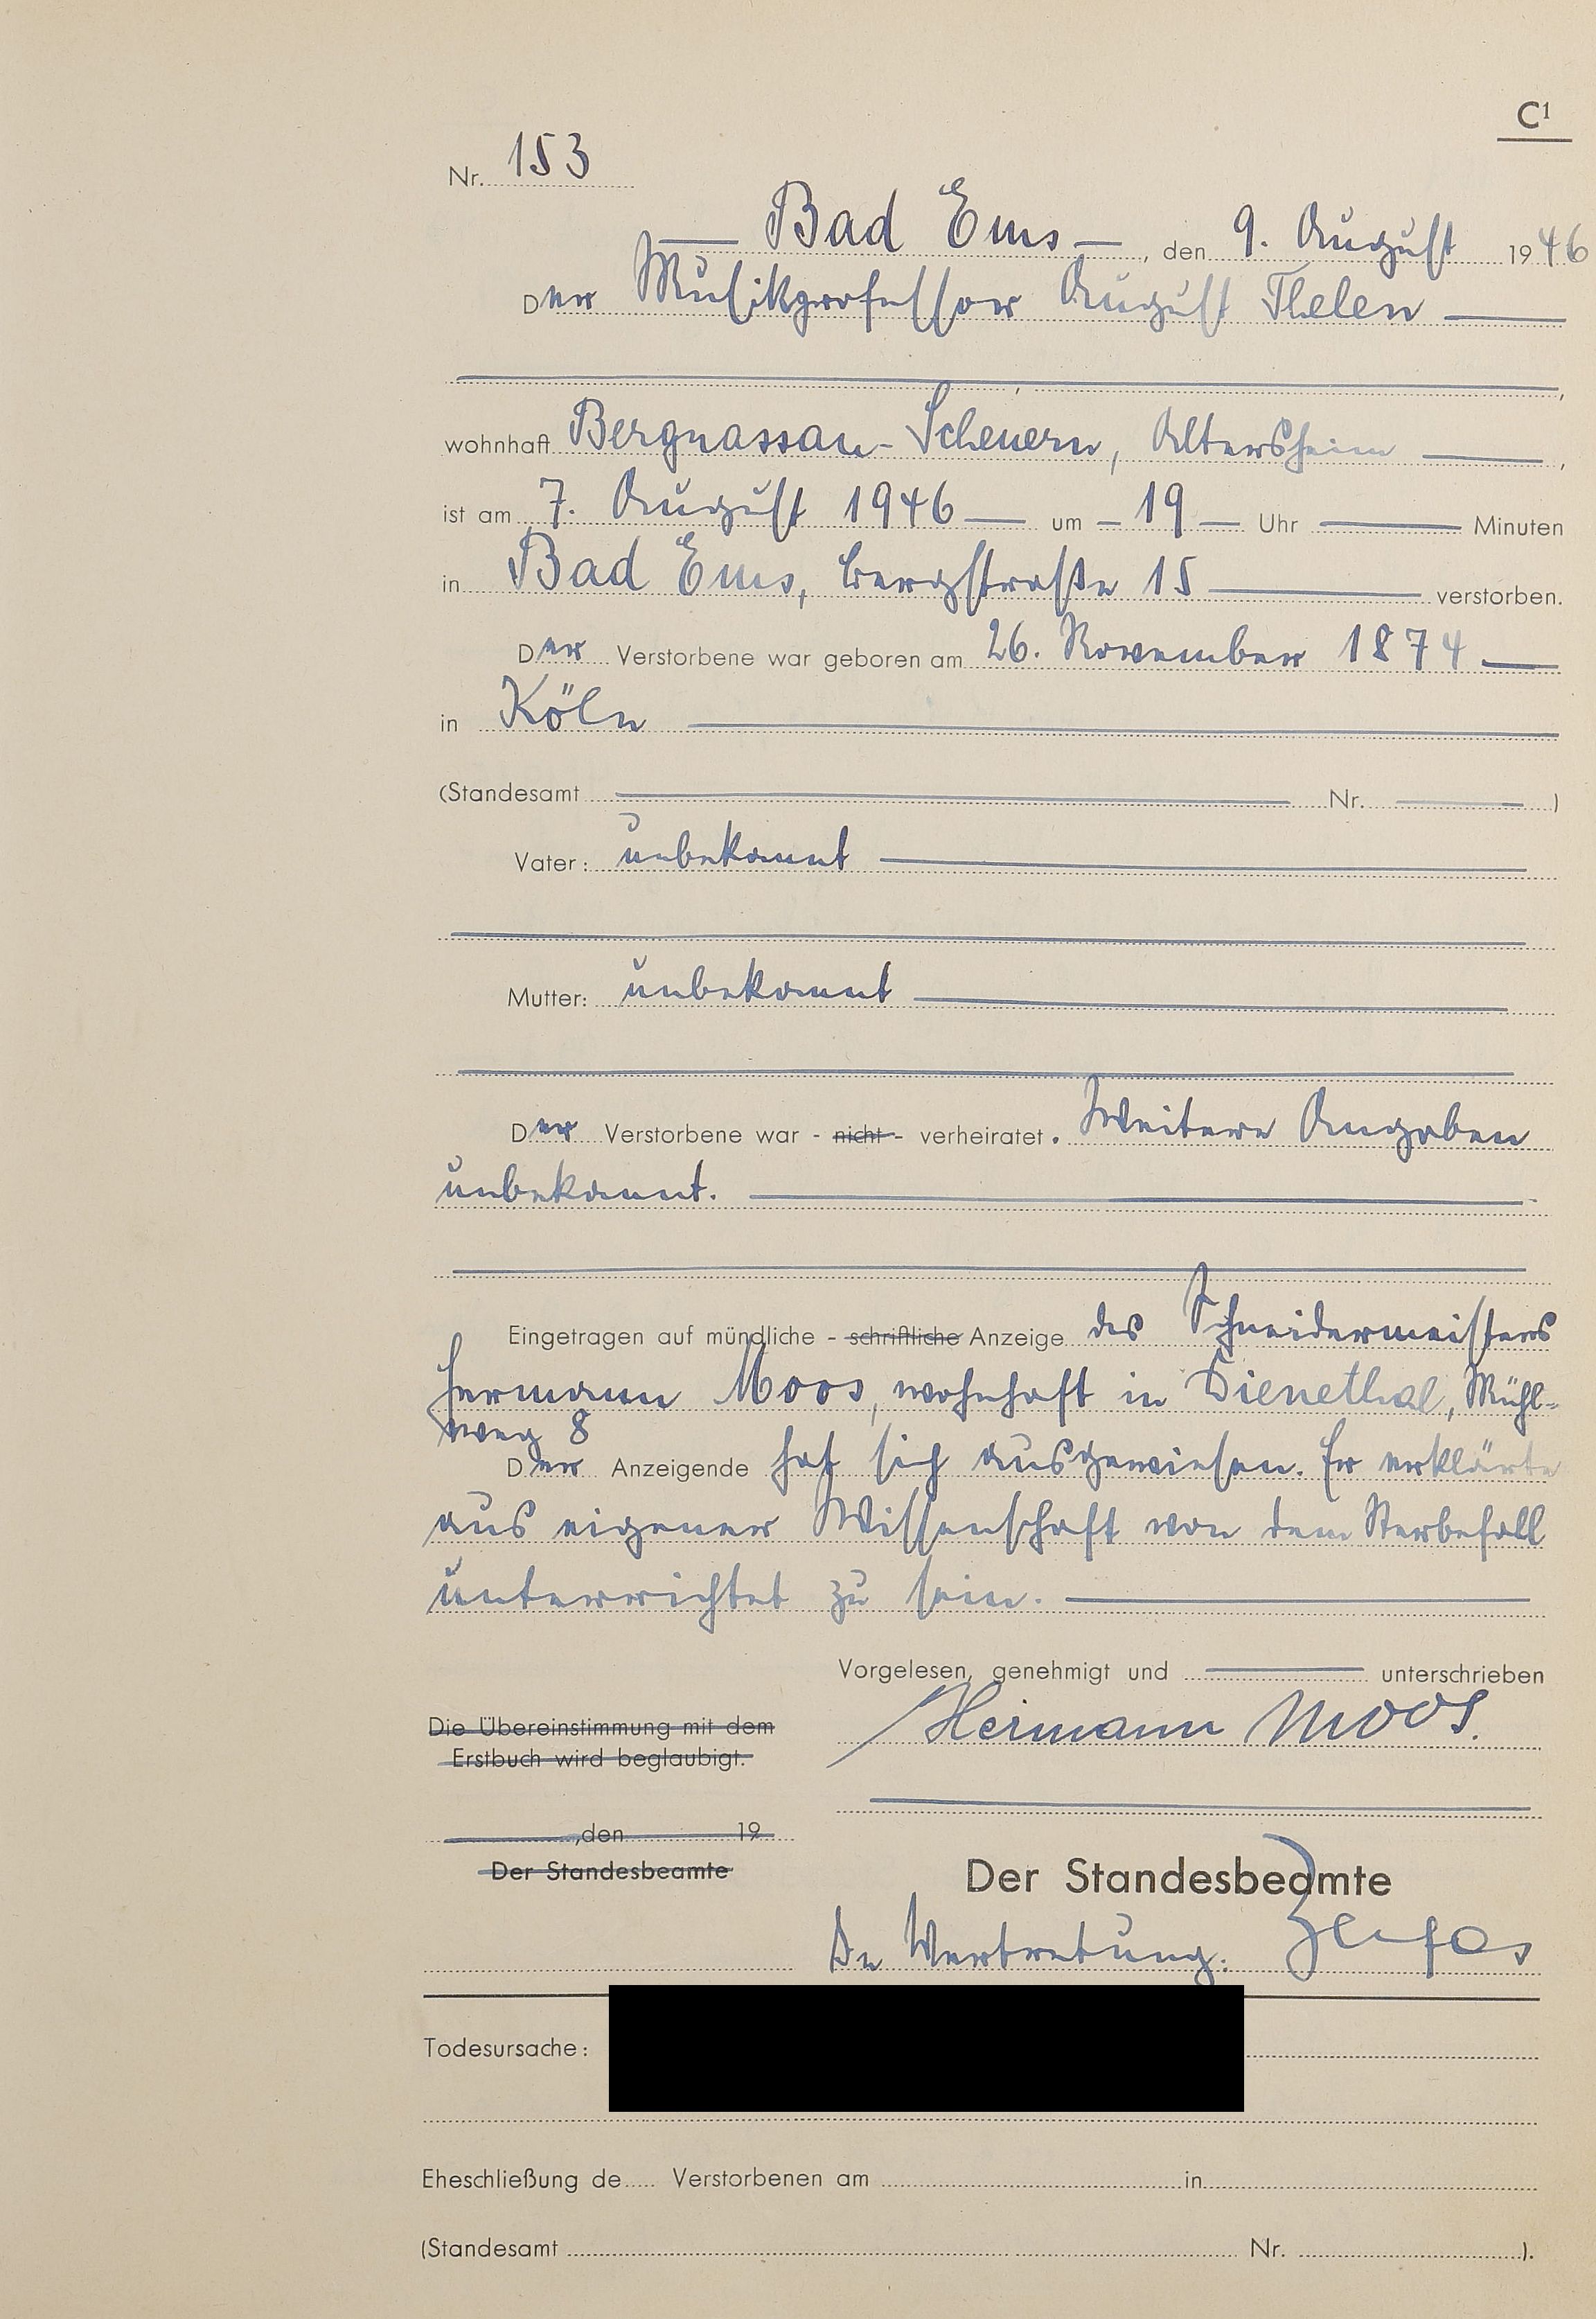 C1
Nr. 153
Bad Ems, den 9. August 1946
Der Musikprofessor August Thelen
wohnhaft Bergnassau-Scheuern, Altersheim,
ist am 7. August 1946 um 19 Uhr Minuten
in Bad Ems, Bergstraße 15 verstorben.
Der Verstorbene war geboren am 26. November 1874
in Köln
(Standesamt Nr. )
Vater: unbekannt
Mutter: unbekannt
Der Verstorbene war - nicht - verheiratet. Weitere Angaben
unbekannt.
Eingetragen auf mündliche - schriftliche Anzeige des Schneidermeisters
Hermann Moos, wohnhaft in Dienethal, Mühl-
weg 8
Der Anzeigende hat sich ausgewiesen. Er erklärte
aus eigener Wissenschaft von dem Sterbefall
unterrichtet zu sein.
Vorgelesen, genehmigt und unterschrieben
Hermann Moos.
Die Übereinstimmung mit dem
Erstbuch wird beglaubigt.
, den 19
Der Standesbeamte
Der Standesbeamte
In Vertretung:
Todesursache:
Eheschließung de Verstorbenen am in
(Standesamt Nr. ).